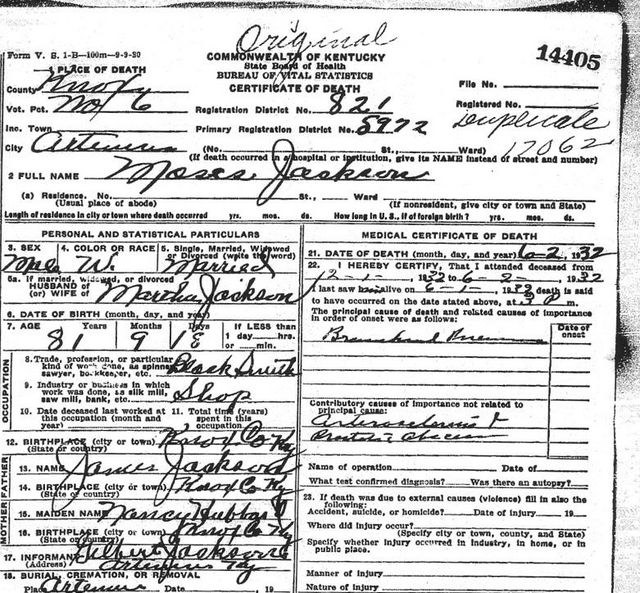 Original
Form V. S. 1-B-100m-9-9-30
COMMONWEALTH OF KENTUCKY
State Board of Health
BUREAU OF VITAL STATISTICS
CERTIFICATE OF DEATH
14405
1 PLACE OF DEATH
County Knox
File No.
Vot. Pct. No 6
Registration District No. 821
Registered No.
Duplicate
Inc. Town
Primary Registration District No. 5972
17062
City Artemus (No. St., Ward)
(If death occurred in a hospital or institution, give its NAME instead of street and number)
2 FULL NAME Moses Jackson
(a) Residence. No. St., Ward
(Usual place of abode) (If nonresident, give city or town and State)
Length of residence in city or town where death occurred yrs. mos. ds. How long in U. S., if of foreign birth? yrs. mos. ds.
PERSONAL AND STATISTICAL PARTICULARS
3. SEX 4. COLOR OR RACE 5. Single, Married, Widowed
or Divorced (write the word)
W Married
5a. If married, widowed, or divorced
HUSBAND of
(or) WIFE of Martha Jackson
6. DATE OF BIRTH (month, day, and year)
7. AGE Years Months Days If LESS than
1 day hrs.
or min.
81 9 18
OCCUPATION
8. Trade, profession, or particular
kind of work done, as spinner,
sawyer, bookkeeper, etc. Black Smith
9. Industry or business in which
work was done, as silk mill,
saw mill, bank, etc. Shop
10. Date deceased last worked at
this occupation (month and
year)
11. Total time (years)
spent in this
occupation
12. BIRTHPLACE (city or town) Knox Co Ky
(State or country)
FATHER
13. NAME James Jackson
14. BIRTHPLACE (city or town) Knox Co Ky
(State or country)
MOTHER
15. MAIDEN NAME Nancy Hubbard
16. BIRTHPLACE (city or town) Knox Co
(State or country) Ky
17. INFORMANT Jackson
(Address) Artemus Ky
18. BURIAL, CREMATION, OR REMOVAL
Place Artemus Date 19
MEDICAL CERTIFICATE OF DEATH
21. DATE OF DEATH (month, day, and year) 6-2, 1932
22. I HEREBY CERTIFY, That I attended deceased from
12-1-, 1932 to 6-2-, 1932
I last saw him alive on 6-1-, 1932 death is said
to have occurred on the date stated above, at 3 m.
The principal cause of death and related causes of importance
in order of onset were as follows:
Date of
onset
Contributory causes of importance not related to
principal cause:
Name of operation Date of
What test confirmed diagnosis? Was there an autopsy?
23. If death was due to external causes (violence) fill in also the
following:
Accident, suicide, or homicide? Date of injury 19
Where did injury occur?
(Specify city or town, county, and State)
Specify whether injury occurred in industry, in home, or in
public place.
Manner of injury
Nature of injury